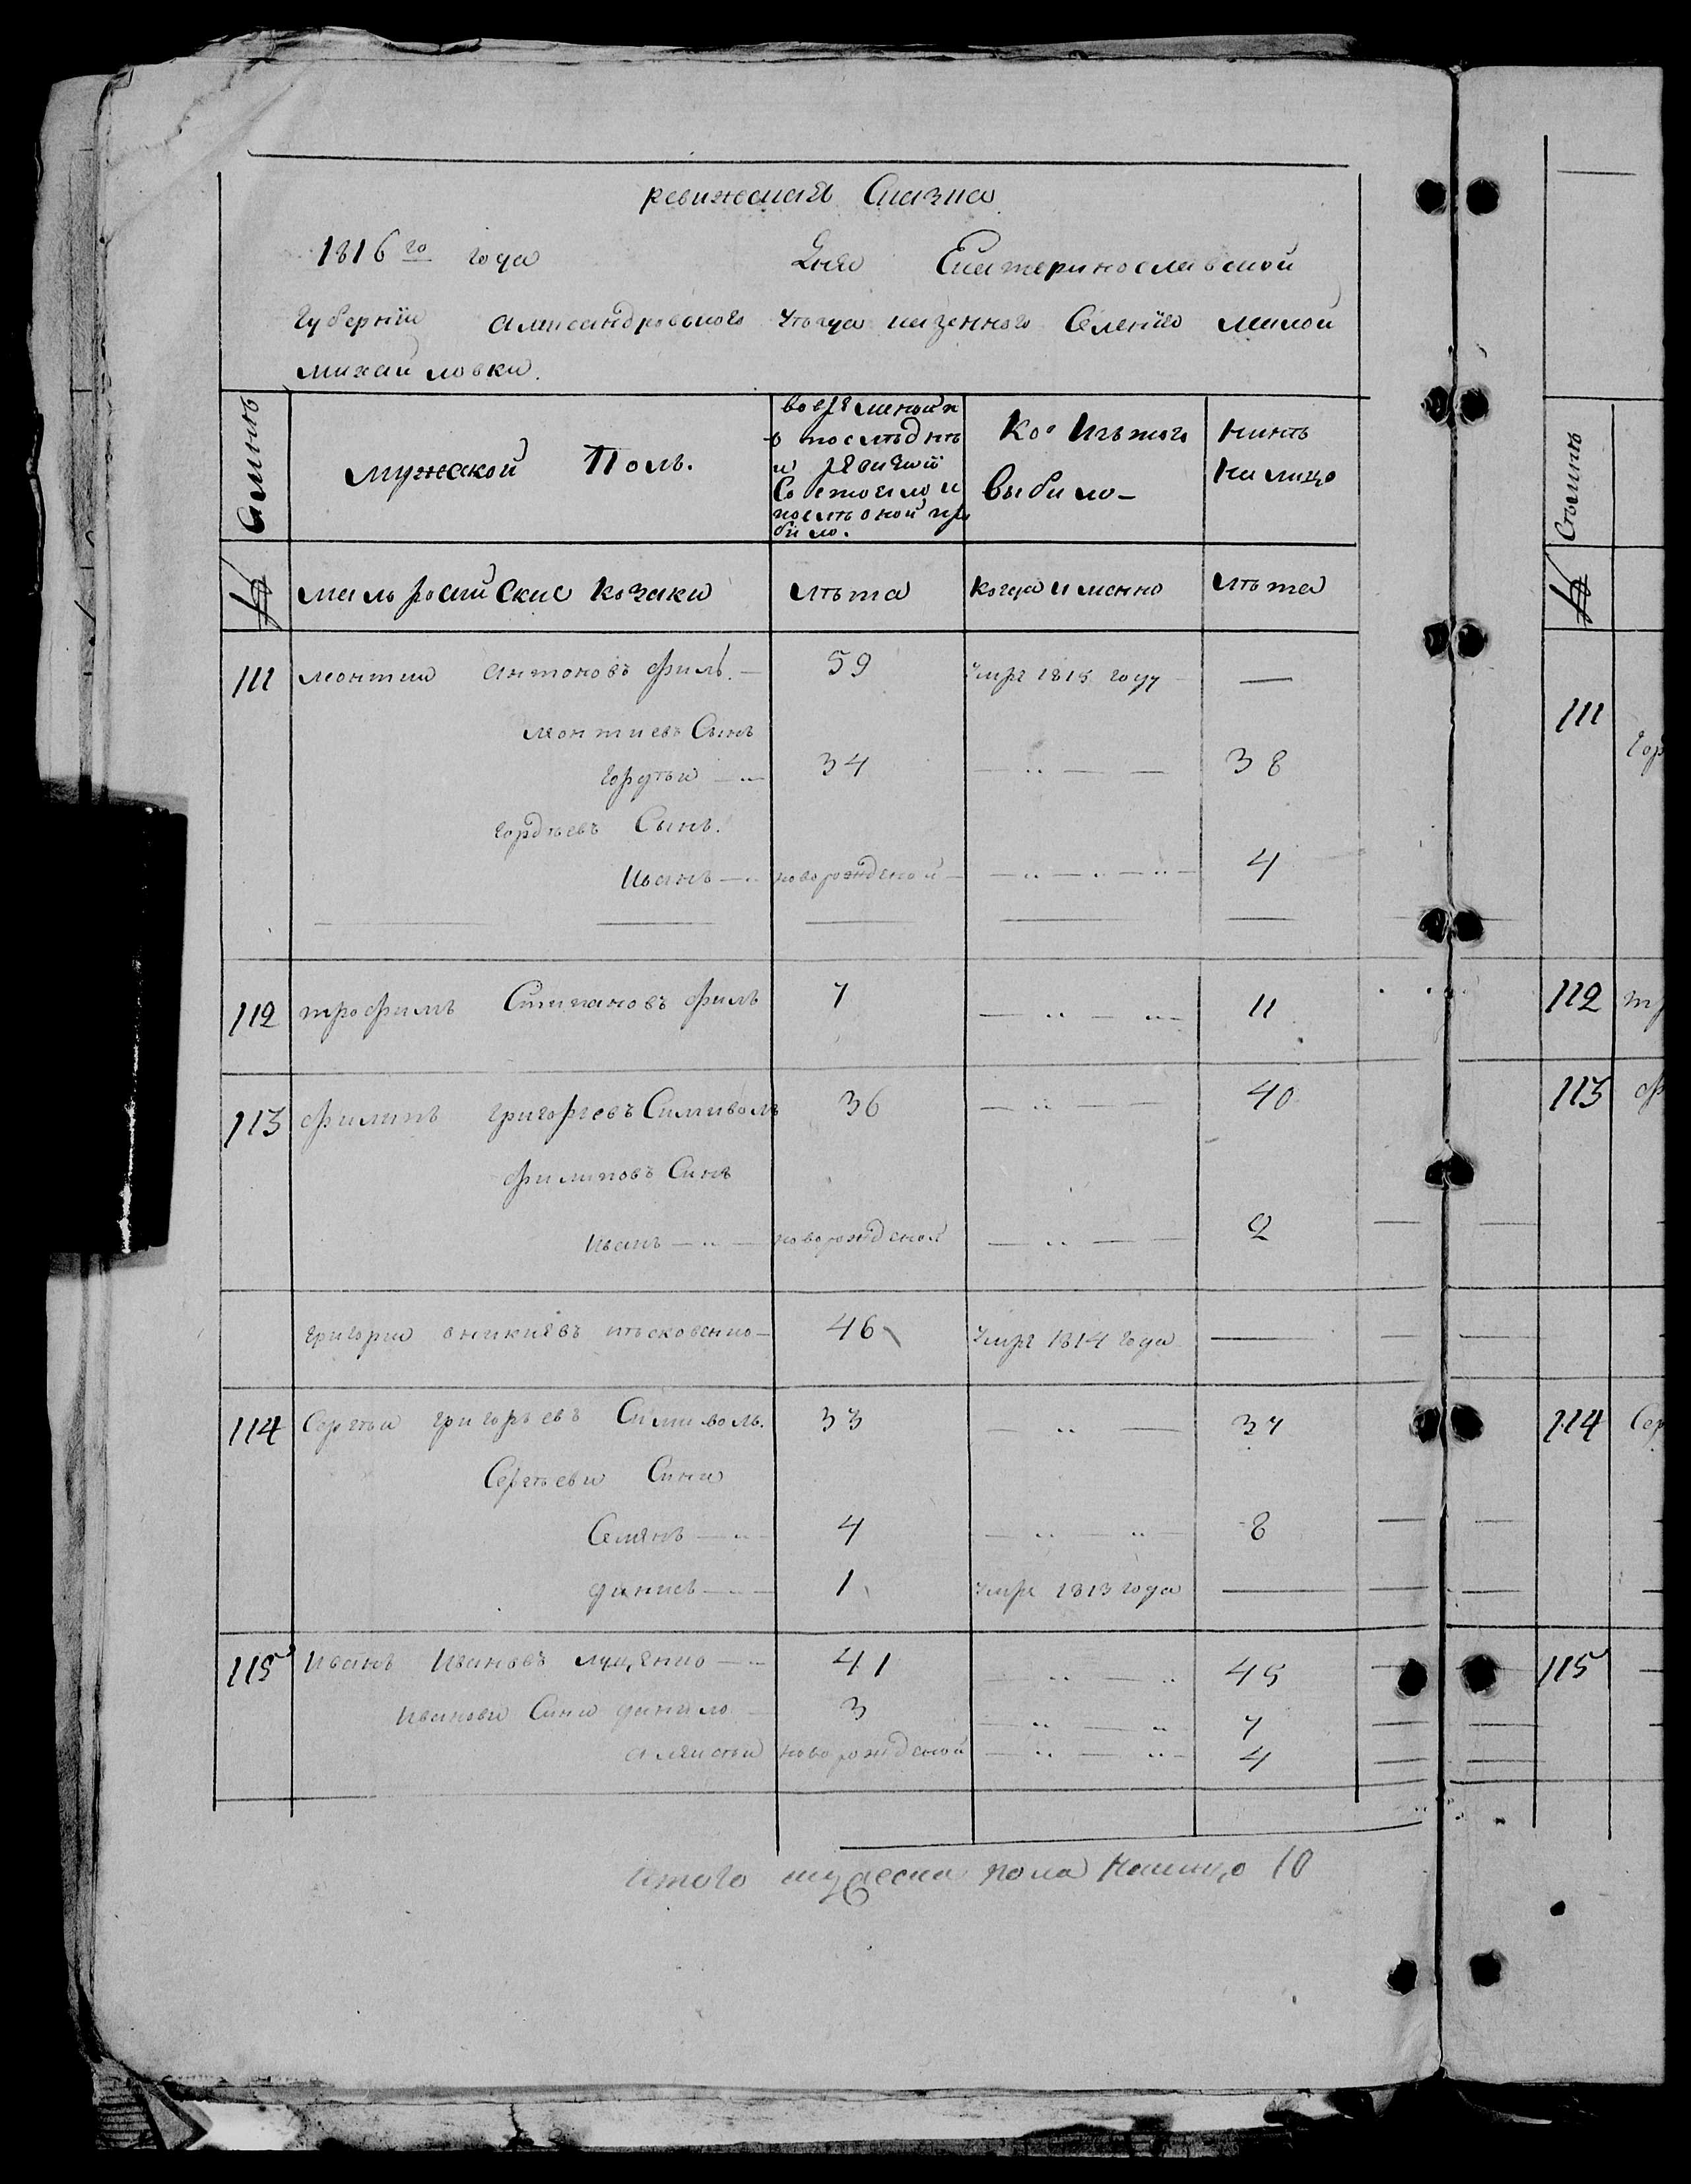 ревижская Сказка
1816го года Дня Екатеринославской
Губернїи Александровского уѣзда казенного Селенїя малой
михайловки.
Семии
мужской Полъ.
Во
о последнѣ
и ревизїи
Состояло и
послѣ оной при
было.
Ко Изъ того
выбило
Ниһѣ
На лицо
№
малоросийские козаки
лѣта
когда имянно
лѣта
111 леонтий антоновъ филь. 59 умре 1815 году —
леонтиевъ Сынъ
Гордѣй 34 38
гордѣевъ Сынъ.
Иванъ новорожденой 4
112 трофимъ Стипановъ филь 7 11
113 филипъ григорьевъ 36 40
филиповъ Синъ
иванъ новорожденой 2
григорий аникиевъ 46 умре 1814 года —
114 Сергѣй григорьевъ 33 37
Сергѣеви Сини
Семенъ 4 8
динисъ 1 умре 1813 года —
115 Иванъ Ивановъ луценко 41 45
Иванови Сини данило 3 7
алексѣй новорожденой 4
Итого мужеска пола налицо 10
Семии
№
111
Гор
112 тр
113 ф
114 Сер
115